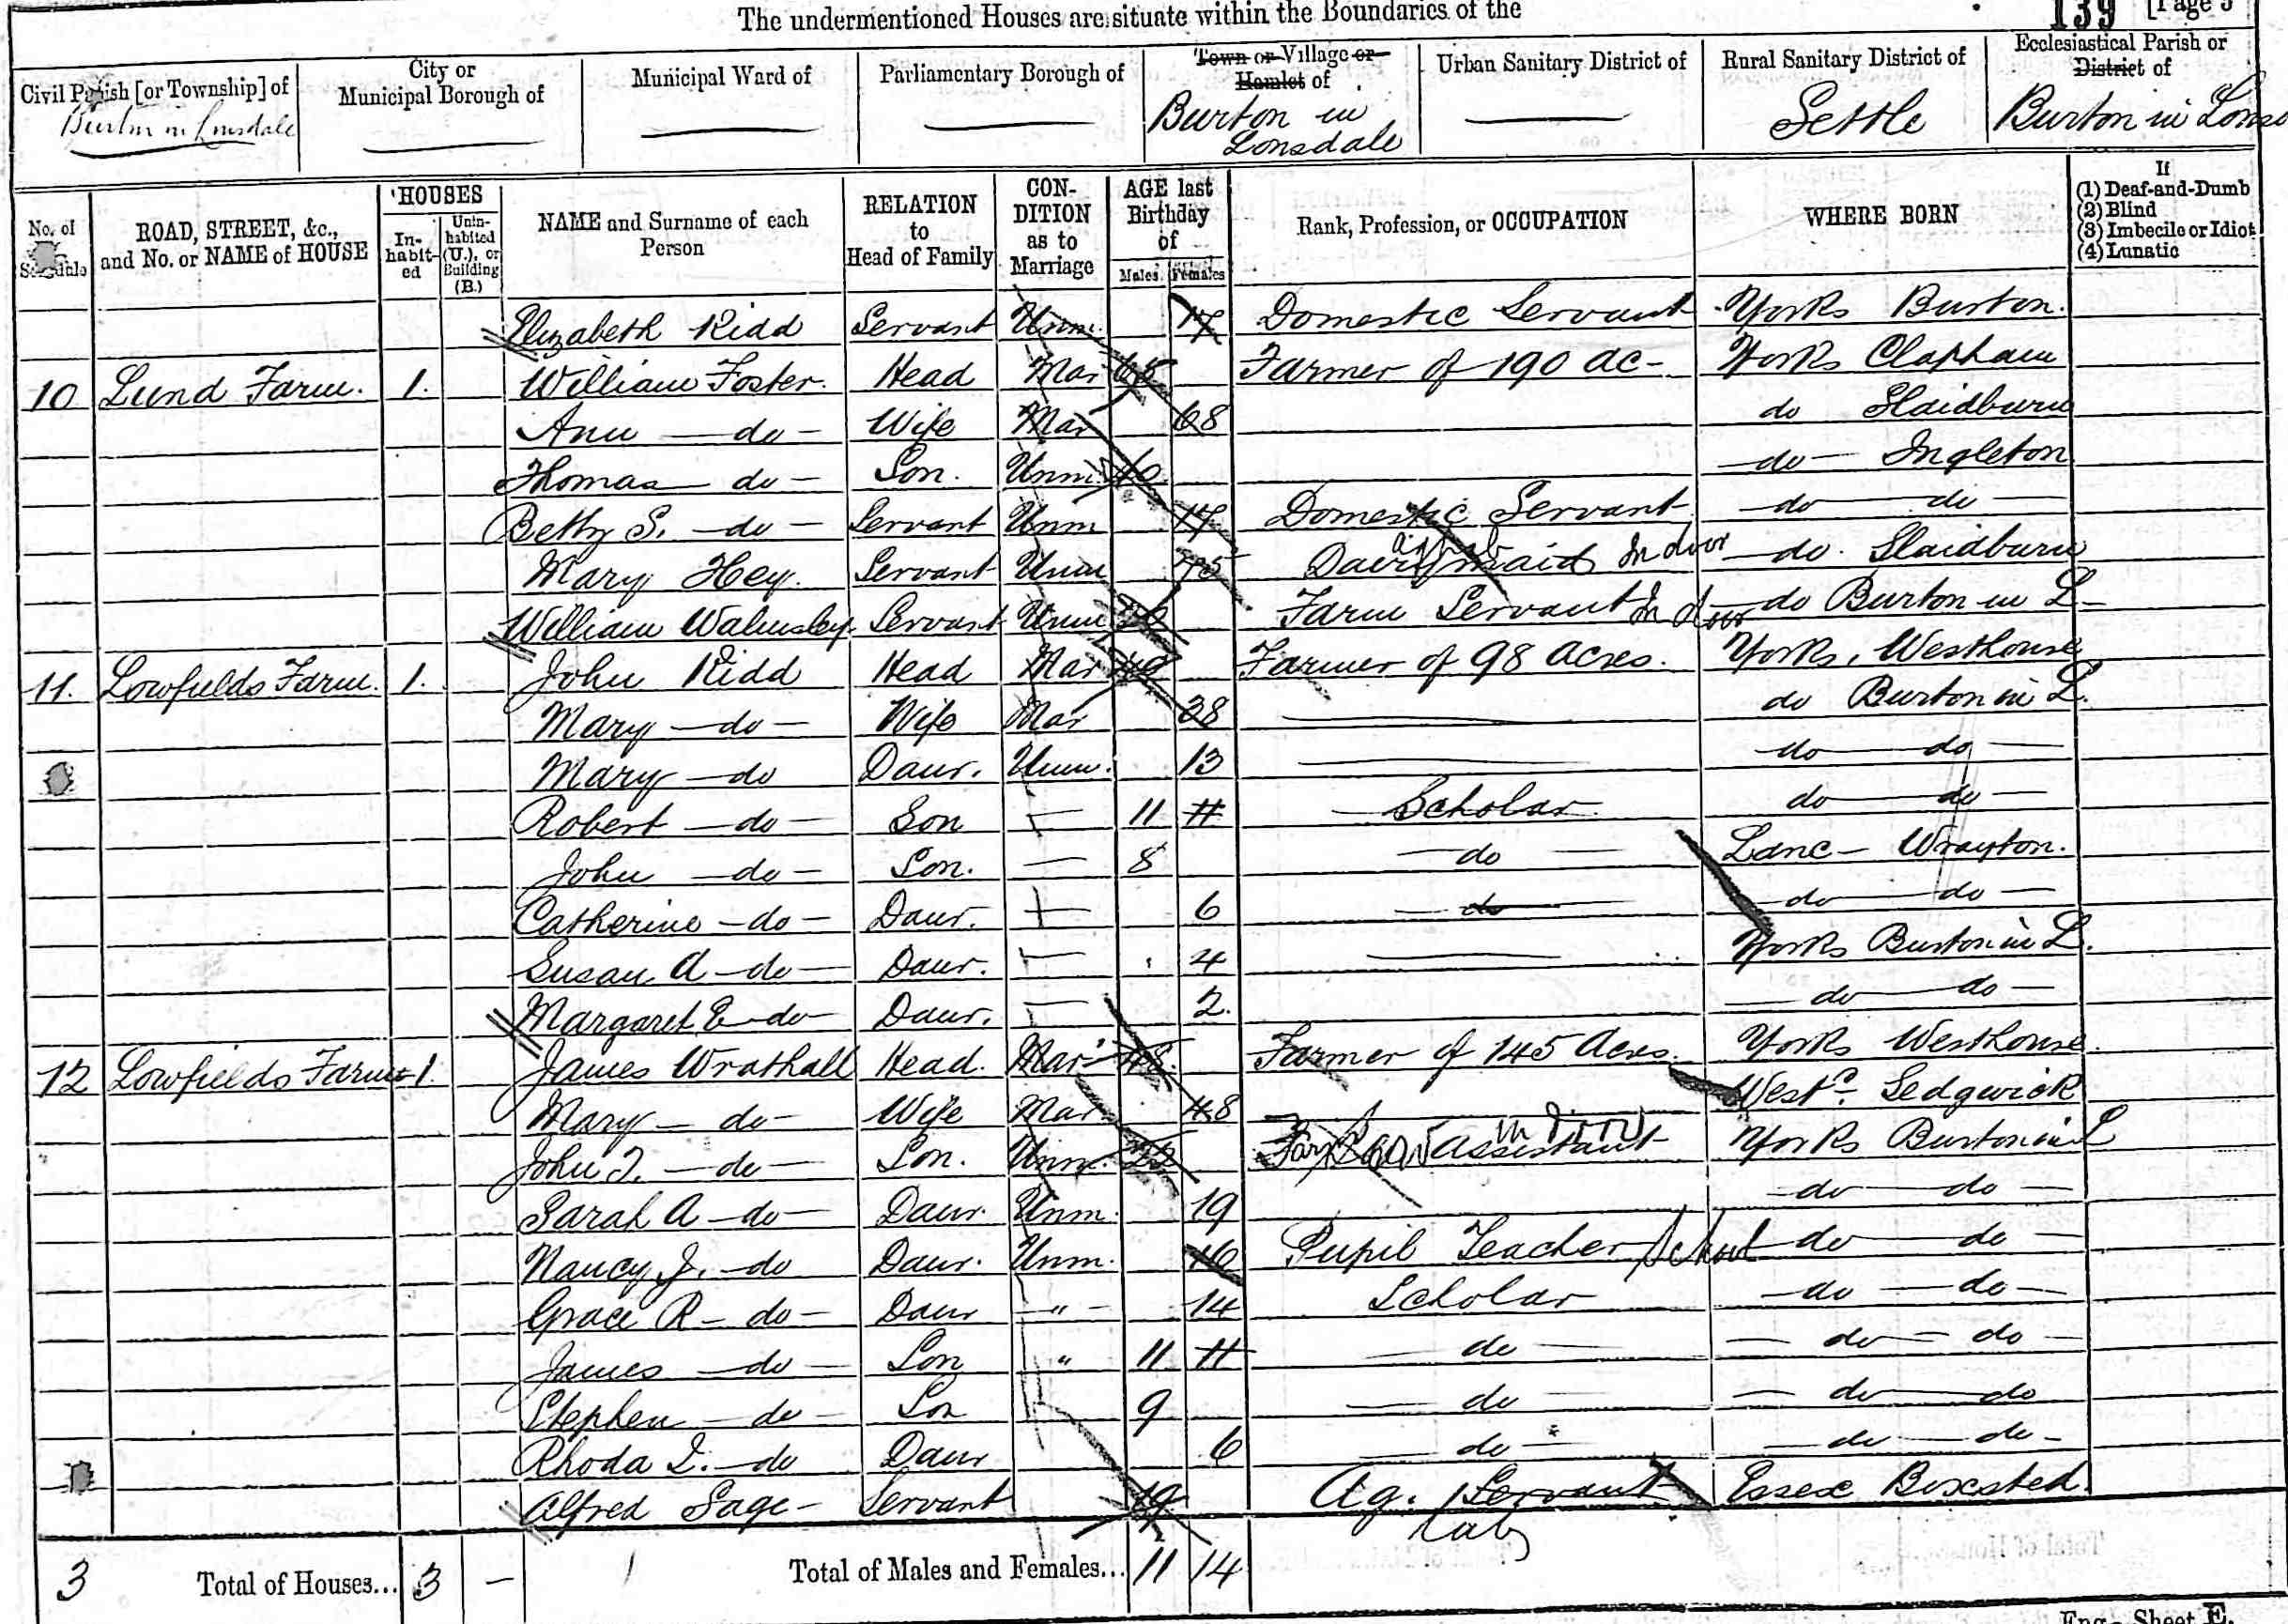 The undermentioned Houses are situate within the Boundaries of the
139 [Page 5
Civil Parish [or Township] of
Burton in Lonsdale
City or
Municipal Borough of
Municipal Ward of
Parliamentary Borough of
Town or Village or
Hamlet of
Burton in
Lonsdale
Urban Sanitary District of
Rural Sanitary District of
Settle
Ecclesiastical Parish or
District of
Burton in Lonsd
No. of
Schedule
ROAD, STREET, &c.,
and No. or NAME of HOUSE
HOUSES
In-
habit-
ed
Unin-
habited
(U.), or
Building
(B.)
NAME and Surname of each
Person
RELATION
to
Head of Family
CON-
DITION
as to
Marriage
AGE last
Birthday
of
Males Females
Rank, Profession, or OCCUPATION
WHERE BORN
If
(1) Deaf-and-Dumb
(2) Blind
(3) Imbecile or Idiot
(4) Lunatic
Elizabeth Kidd Servant Unm. 17 Domestic Servant Yorks Burton.
10 Lund Farm. 1. William Foster. Head Mar 65 Farmer of 190 ac- Yorks Clapham
Ann - do - Wife Mar 68 do Slaidburn
Thomas do - Son. Unm 40 do - Ingleton
Betty S. - do - Servant Unm 17 Domestic Servant do - do
Mary Hey. Servant Unm Dairymaid Indoor do. Slaidburn
William Walmsley Servant Unm Farm Servant In door do Burton in L-
11. Lowfields Farm. 1. John Kidd Head Mar 40 Farmer of 98 Acres. Yorks, Westhouse
Mary - do - Wife Mar 38 do Burton in L.
Mary - do Daur. Unm. 13 do - do
Robert - do - Son 11 11 Scholar do - do
John - do - Son. 8 do Lanc - Wrayton.
Catherine - do - Daur. 6 do do - do
Susan A - do - Daur. 4 Yorks Burton in L.
Margaret E - do - Daur. 2. do - do
12 Lowfields Farm 1. James Wrathall Head. Mar 48. Farmer of 145 Acres. Yorks Westhouse
Mary - do - Wife Mar 48 Westd. Sedgwick
John T. - do - Son. Unm. 22 Farm Son Assistant in door Yorks Burton in L
Sarah A - do - Daur. Unm. 19 do - do
Nancy J. - do Daur. Unm. 16 Pupil Teacher School do - do
Grace R - do - Daur " 14 Scholar do - do
James - do - Son " 11 11 do do - do
Stephen - do - Son 9 do do - do
Rhoda I. - do Daur 6 do do - do -
Alfred Sage - Servant 19 Ag. Servant Essex Boxsted
Lab
3 Total of Houses... 3 - Total of Males and Females... 11 14
Eng.- Sheet E.